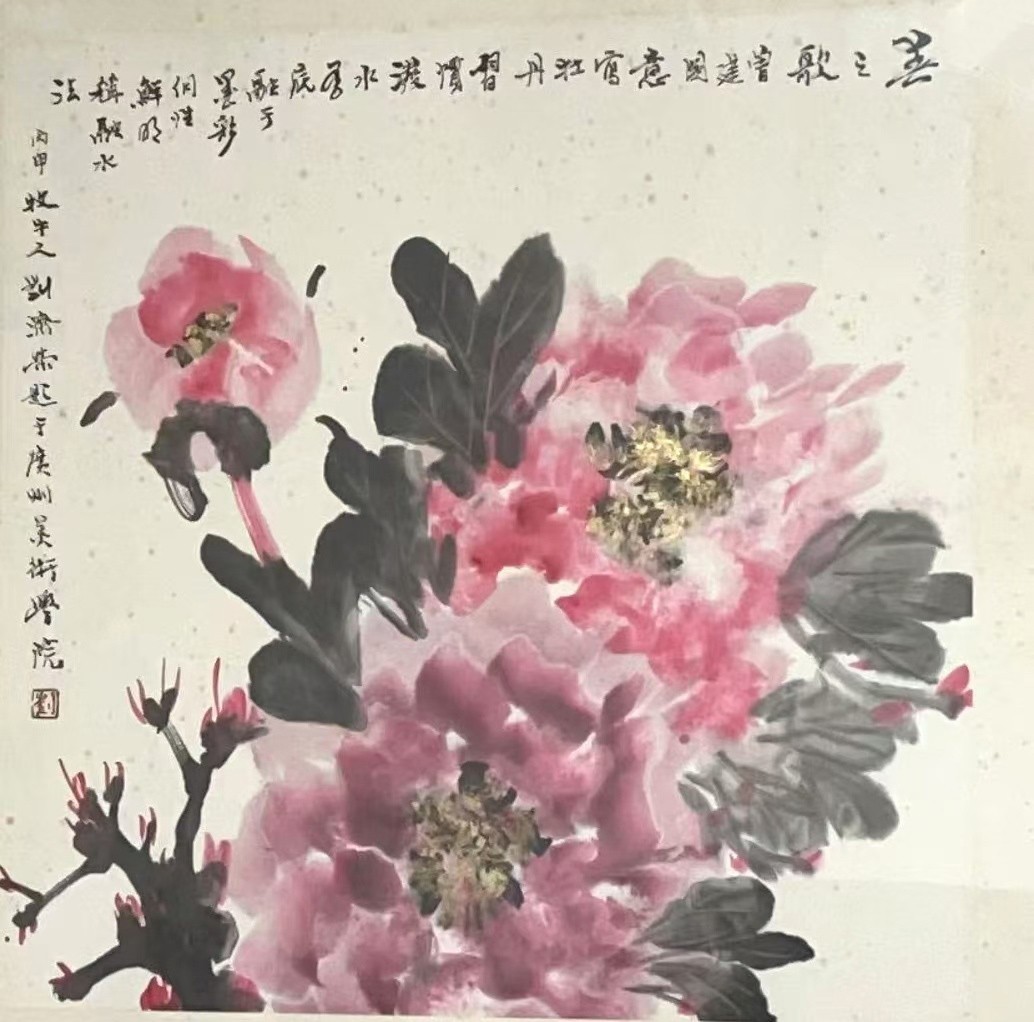 美之歌曾建國意寫牡丹習慣潑水为底融于墨彩個性鮮明稱融水法
丙申牧牛人劉濟榮題于廣州美術學院
劉